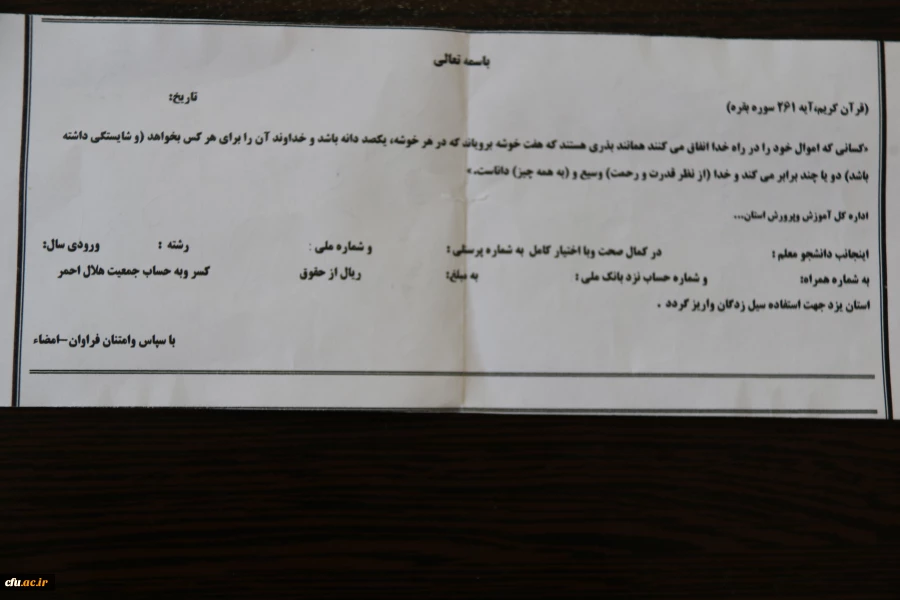 باسمه تعالی
تاریخ:
(قرآن کریم،آیه ۲۶۱ سوره بقره)
«کسانی که اموال خود را در راه خدا انفاق می کنند همانند بذری هستند که هفت خوشه برویاند که در هر خوشه، یکصد دانه باشد و خداوند آن را برای هر کس بخواهد (و شایستگی داشته
باشد) دو یا چند برابر می کند و خدا (از نظر قدرت و رحمت) وسیع و (به همه چیز) داناست.»
اداره کل آموزش وپرورش استان...
اینجانب دانشجو معلم : در کمال صحت وبا اختیار کامل به شماره پرسنلی : و شماره ملی : رشته : ورودی سال:
به شماره همراه: و شماره حساب نزد بانک ملی : به مبلغ: ریال از حقوق کسر وبه حساب جمعیت هلال احمر
استان یزد جهت استفاده سیل زدگان واریز گردد .
با سپاس وامتنان فراوان-امضاء
cfu.ac.ir